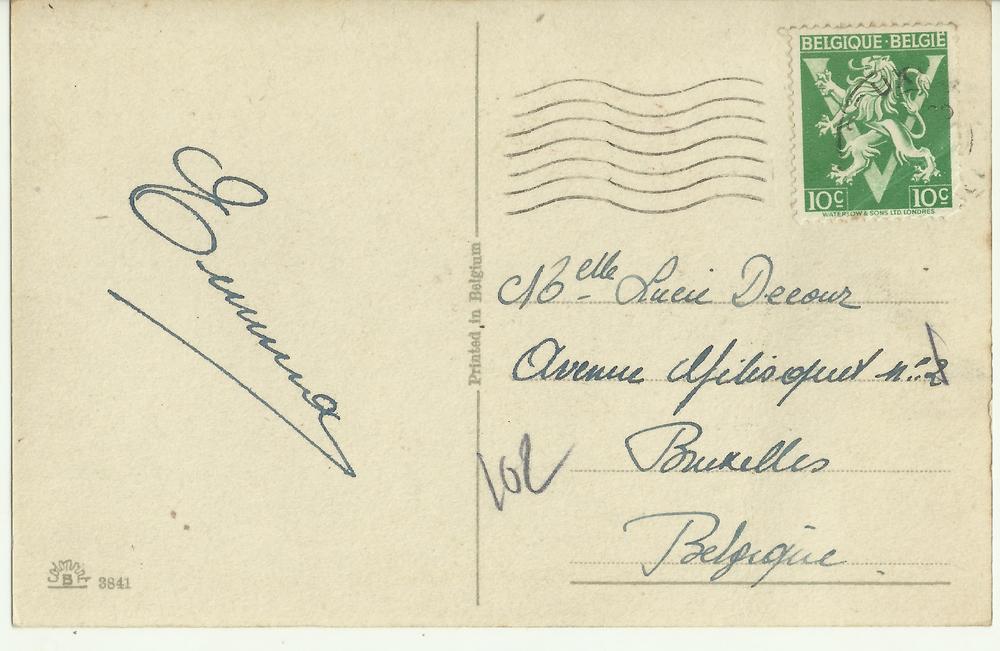 Emma
BELGIQUE·BELGIË
10c 10c
WATERLOW & SONS LTD. LONDRES
Melle Lucie Decour
Avenue n°
Bruxelles
Belgique
102
Printed in Belgium
B
3841